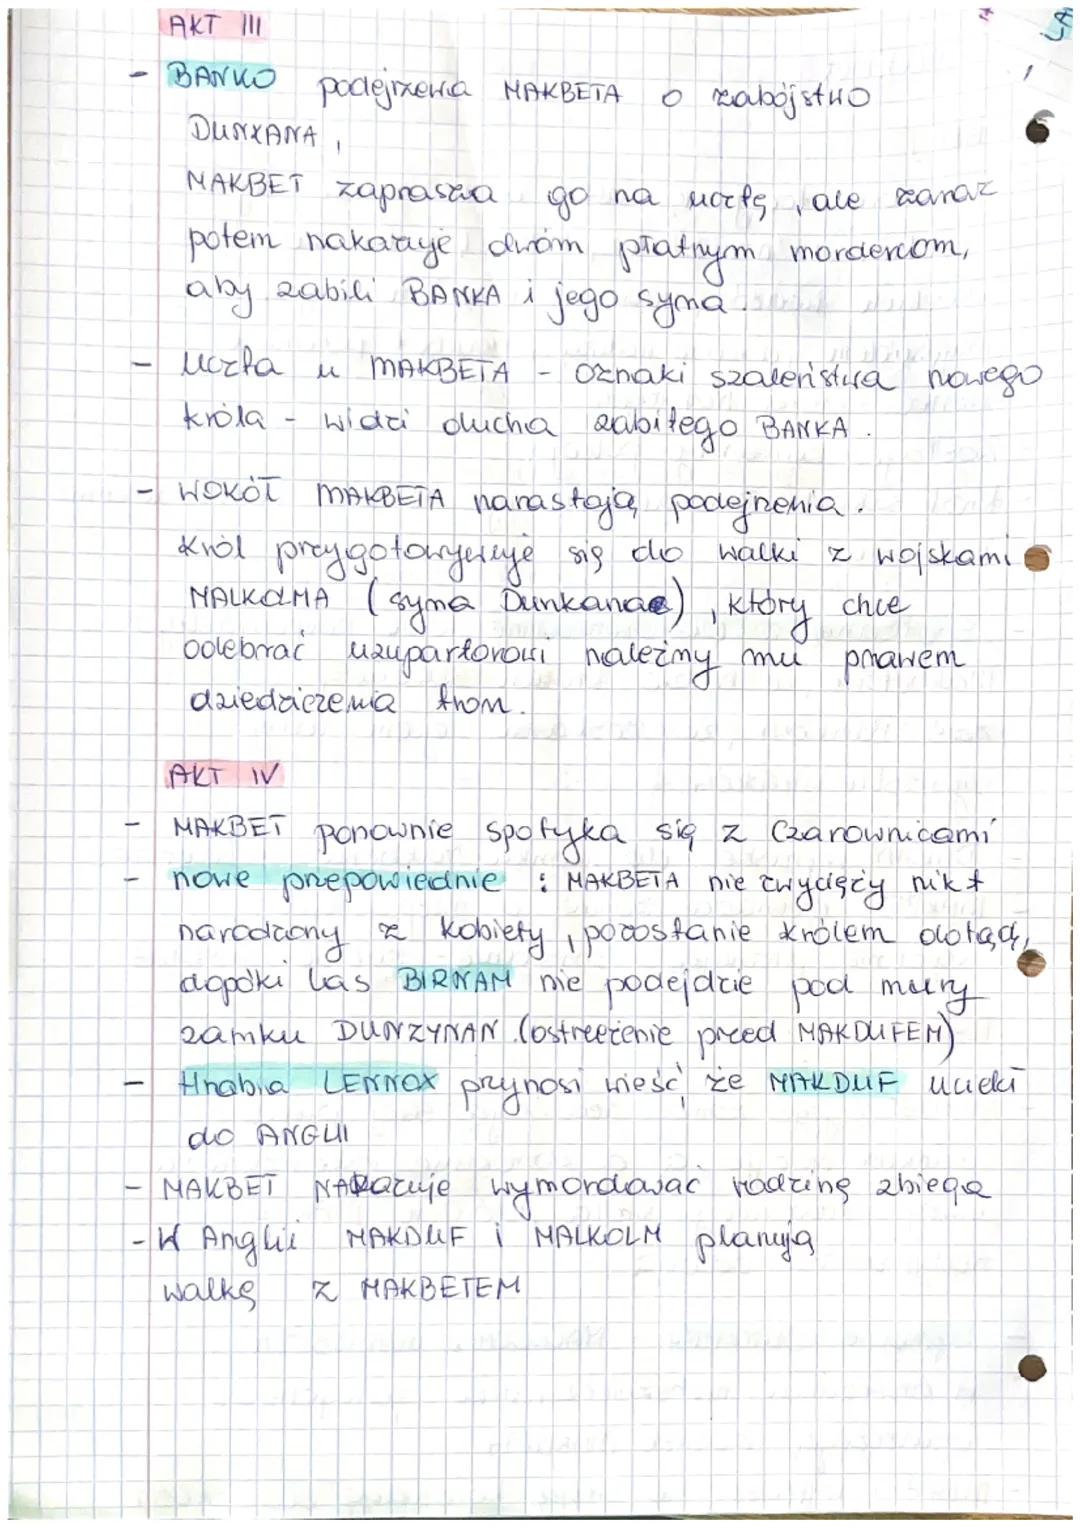 AKT III
- BANKO podejrzewa MAKBETA o zabójstwo
DUNKANA,
MAKBET zaprasza go na ucztę, ale zaraz
potem nakazuje dwóm płatnym mordercom,
aby zabili BANKA i jego syna.
- Uczta u MAKBETA - oznaki szaleństwa nowego
króla - widzi ducha zabitego BANKA.
- WOKÓŁ MAKBETA narastają podejrzenia.
Król przygotowywuje się do walki z wojskami
MALKOLMA (syna Dunkana), który chce
odebrać uzupartorowi należny mu prawem
dziedziczenia tron.
AKT IV
- MAKBET ponownie spotyka się z Czarownicami
- nowe przepowiednie : MAKBETA nie zwycięży nikt
narodzony z kobiety, pozostanie królem dotąd,
dopóki las BIRNAM nie podejdzie pod mury
zamku DUNZYNAN (ostrzeżenie przed MAKDUFEM)
- Hrabia LENNOX przynosi wieść, że MAKDUF uciekł
do ANGLII
- MAKBET NAKazuje wymordować rodzinę zbiega
- W Anglii MAKDUF i MALKOLM planują
walkę z MAKBETEM